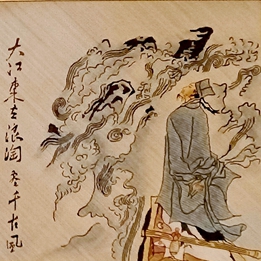 大江東去浪淘尽千古風